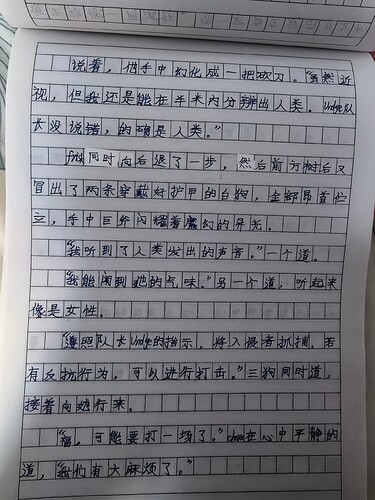 说着，他手中幻化成一把砍刀。“虽然近
视，但我还是能在半米内分辨出人类。Undyne队
长没说错，的确是人类。”
frisk同时向后退了一步，然后前方树后又
冒出了两条穿戴好护甲的白狗，全部昂首伫
立，手中巨斧闪耀着魔幻的异光。
“我听到了人类发出的声音。”一个道。
“我能闻到她的气味。”另一个道，听起来
像是女性。
“遵照队长Undyne的指示，将入侵者抓捕，若
有反抗行为，可以进行打击。”三狗同时道，
接着向她行来。
“福，可能要打一场了。”chara在心中平静的
道，“我们有大麻烦了。”